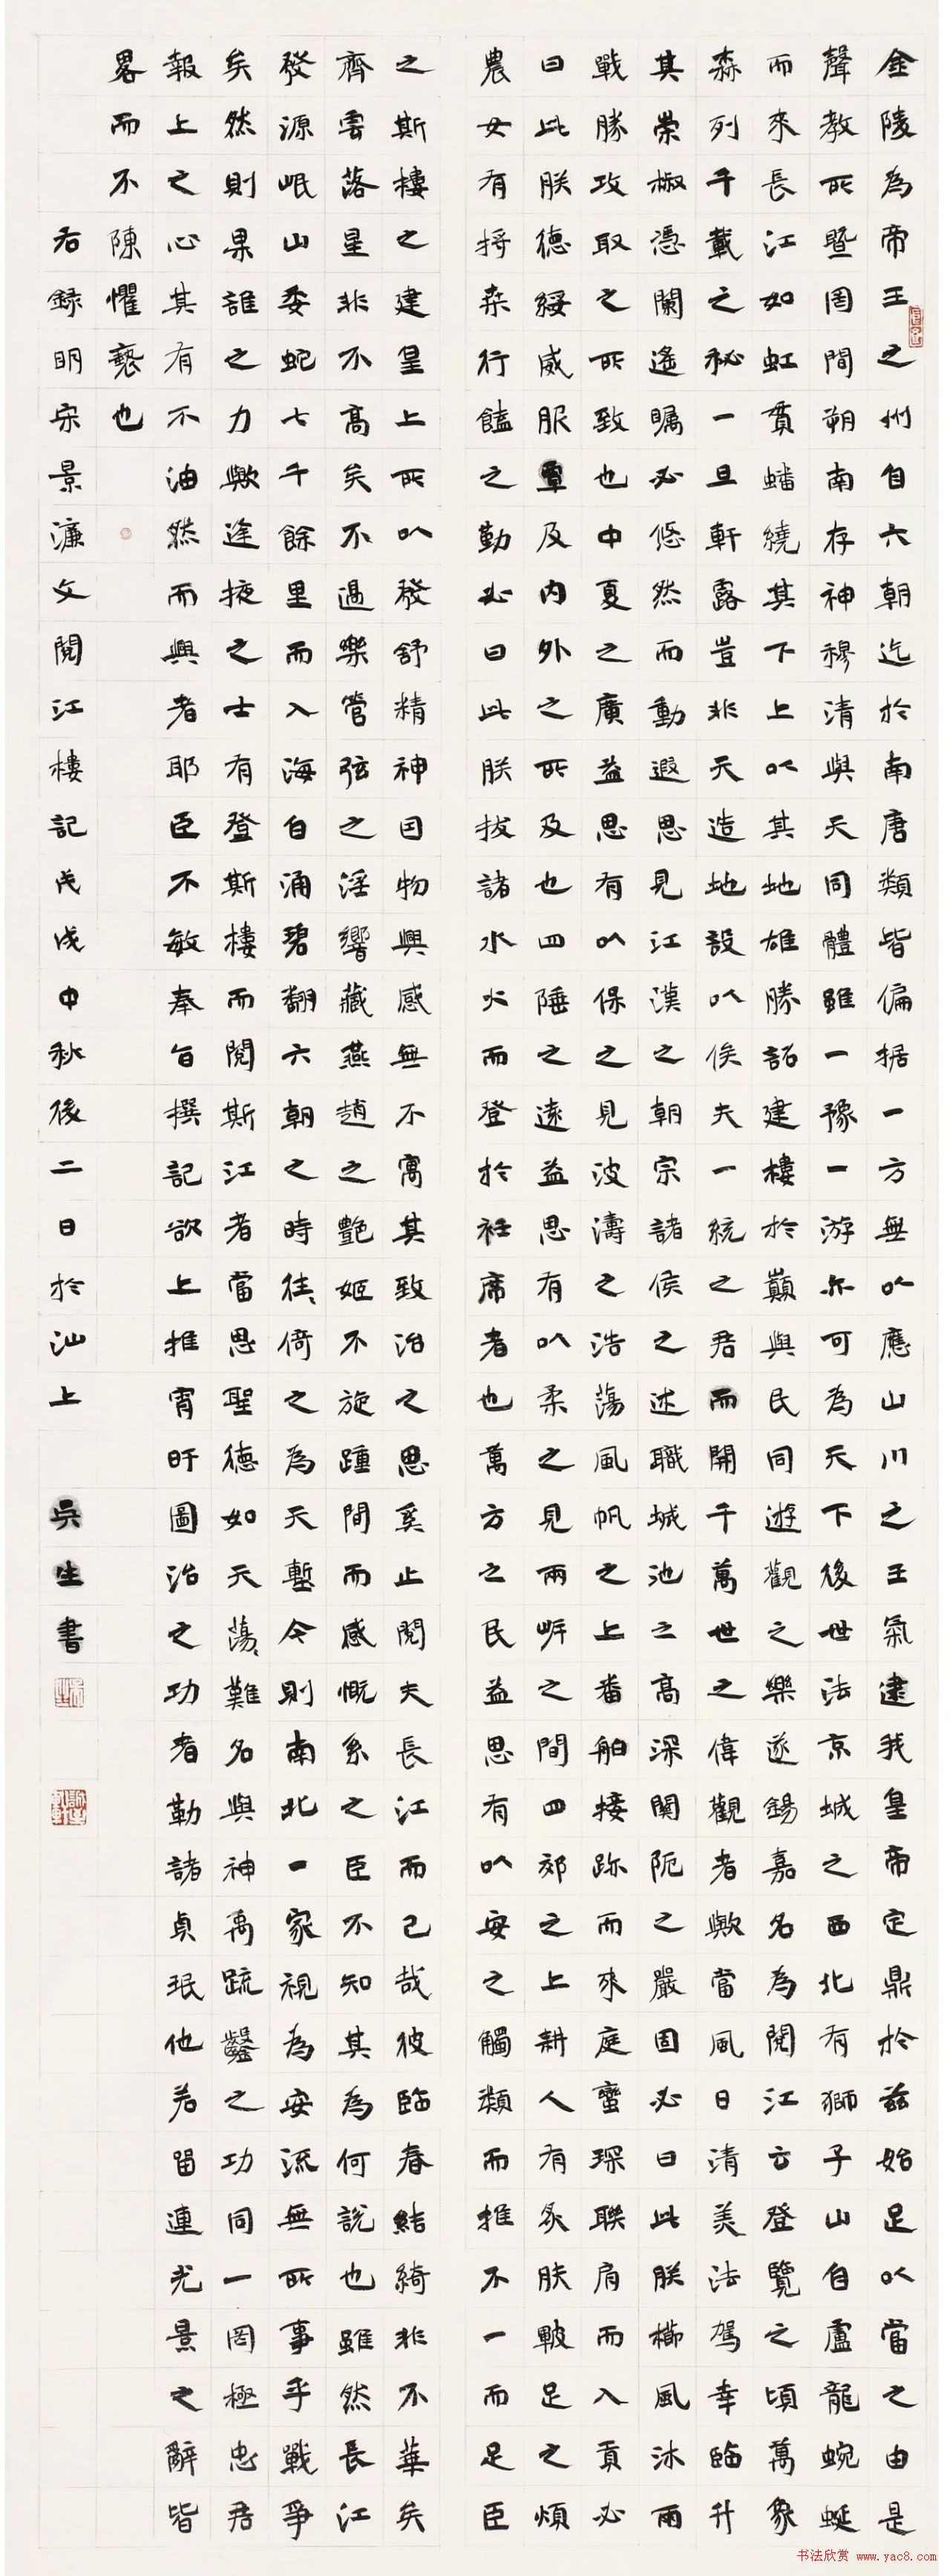 金陵為帝王之州自六朝迄於南唐類皆偏据一方無以應山川之王氣逮我皇帝定鼎於茲始足以當之由是
聲教所暨罔間朔南存神穆清與天同體雖一豫一游亦可為天下後世法京城之西北有獅子山自盧龍蜿蜒
而來長江如虹貫蟠繞其下上以其地雄勝詔建樓於巔與民同遊觀之樂遂錫嘉名為閱江云登覽之頃萬象
森列千載之秘一旦軒露豈非天造地設以俟夫一統之君而開千萬世之偉觀者歟當風日清美法駕幸臨升
其崇椒憑闌遙矚必悠然而動遐思見江漢之朝宗諸侯之述職城池之高深關阨之嚴固必曰此朕櫛風沐雨
戰勝攻取之所致也中夏之廣益思有以保之見波濤之浩蕩風帆之上番舶接跡而來庭蠻琛聯肩而入貢必
曰此朕德綏威服覃及内外之所及也四陲之遠益思有以柔之見兩岸之間四郊之上耕人有炙肤皸足之煩
農女有捋桑行饁之勤必曰此朕拔諸水火而登於衽席者也萬方之民益思有以安之觸類而推不一而足臣
之斯樓之建皇上所以發舒精神因物興感無不寓其致治之思奚止閱夫長江而已哉彼臨春結綺非不華矣
齊雲落星非不高矣不過樂管弦之淫響藏燕趙之艷姬不旋踵間而感慨系之臣不知其為何說也雖然長江
發源岷山委蛇七千餘里而入海白涌碧翻六朝之時往、倚之為天塹今則南北一家視為安流無所事乎戰爭
矣然則果誰之力歟逢掖之士有登斯樓而閱斯江者當思聖德如天蕩、難名與神禹疏鑿之功同一罔極忠君
報上之心其有不油然而興者耶臣不敏奉旨撰記欲上推宵旰圖治之功者勒諸貞珉他若留連光景之辭皆
畧而不陳懼褻也
右錄明宋景濂文閱江樓記戊戌中秋後二日於汕上 吳生書
书法欣赏 www.yac8.com